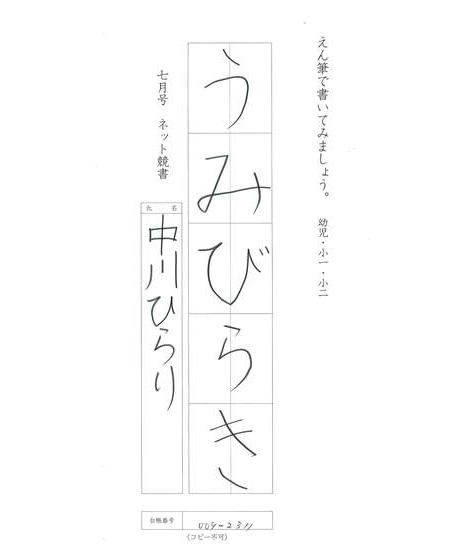 えん筆で書いてみましょう。　幼児・小一・小二
うみびらき
七月号　ネット競書
氏名
中川ひらり
台帳番号
009-2311
(コピー不可)